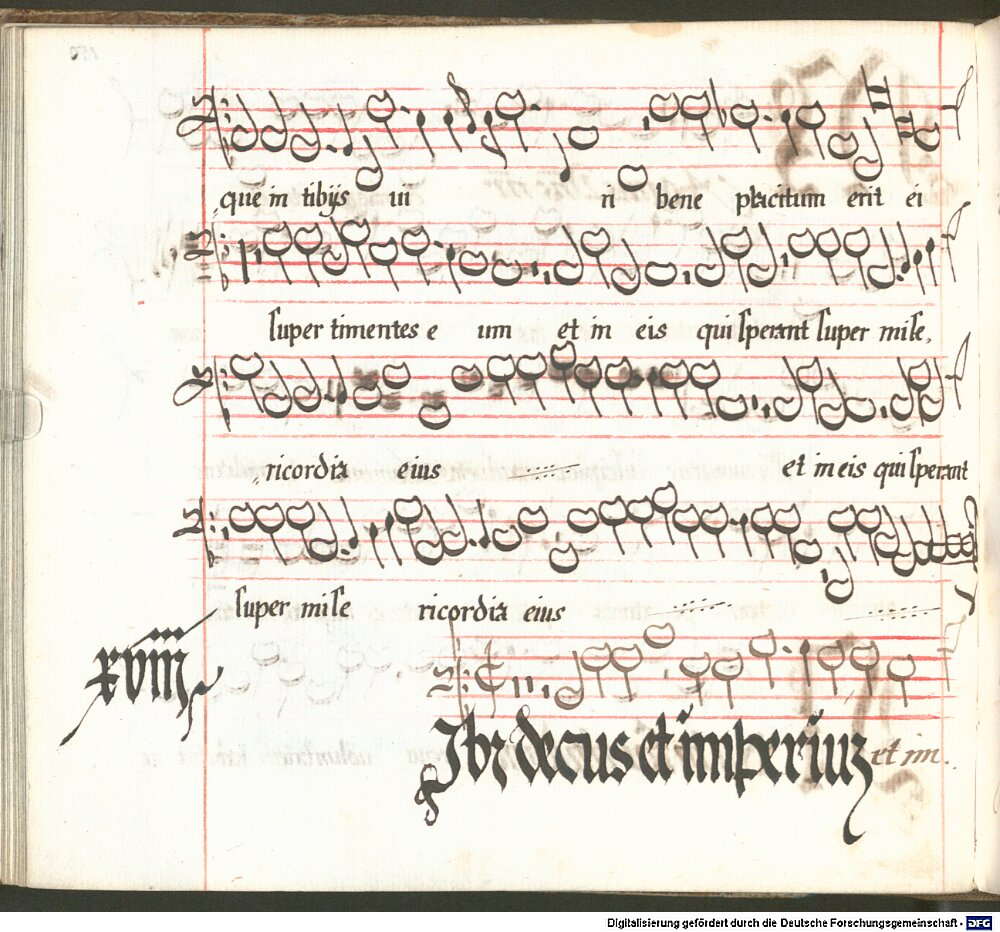 que in tibijs ui ri bene placitum erit ei
super timentes e um et in eis qui sperant super mise,
ricordia eius et in eis qui sperant
super mise ricordia eius
xviii
Ibi decus et imperiuz et im.
Digitalisierung gefördert durch die Deutsche Forschungsgemeinschaft - DFG